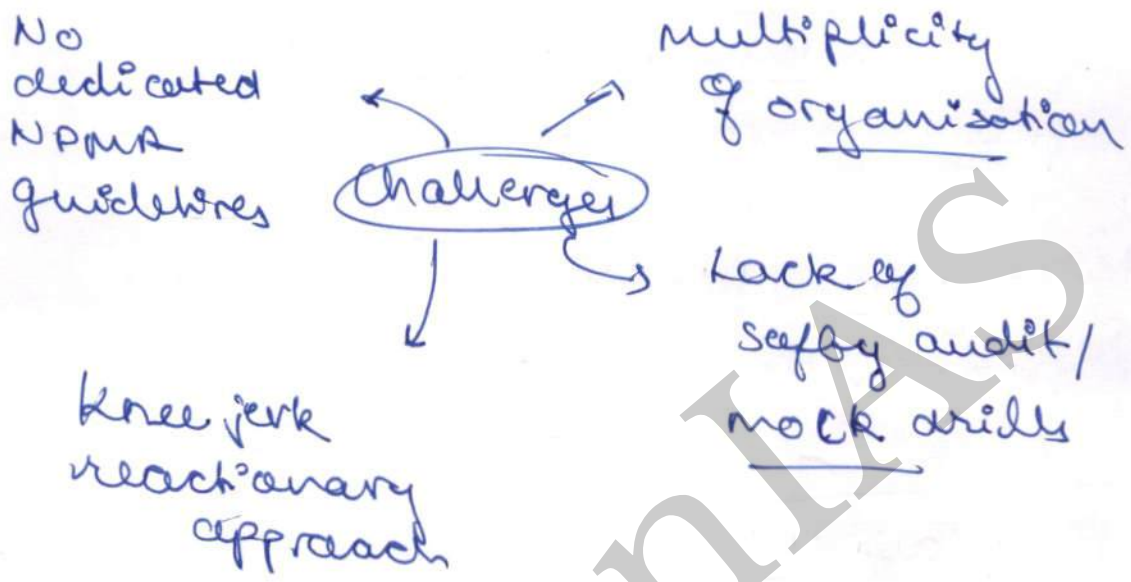 No
dedicated
NDMA
guidelines
Challenges
multiplicity
of organisation
Lack of
safety audit/
mock drills
Knee jerk
reactionary
approach
nIAS